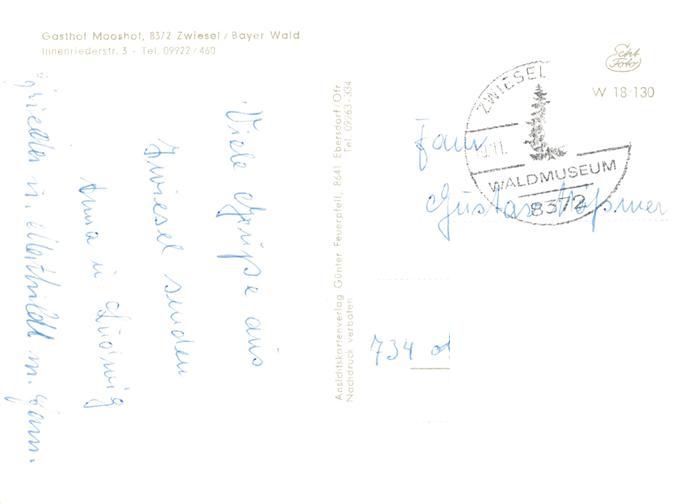 Gasthof Mooshof, 8372 Zwiesel / Bayer Wald
Innenriederstr. 3 - Tel. 09922 / 460
Viele Grüße aus
Zwiesel senden
Anna u. Ludwig
Frieder u. Mathilde m. Fam.
Ansichtskartenverlag Günter Feuerpfeil, 8641 Ebersdorf/Ofr
Tel. 09263-334
Nachdruck verboten
Echt
Foto
W 18/130
ZWIESEL
11.
WALDMUSEUM
8372
Fam.
Gustav
734